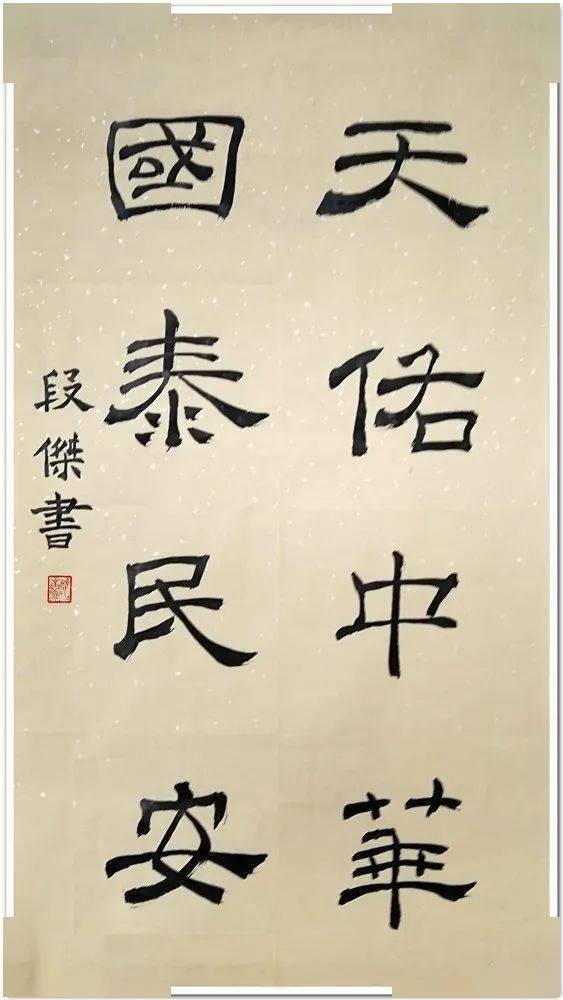 天佑中華
國泰民安
段傑書